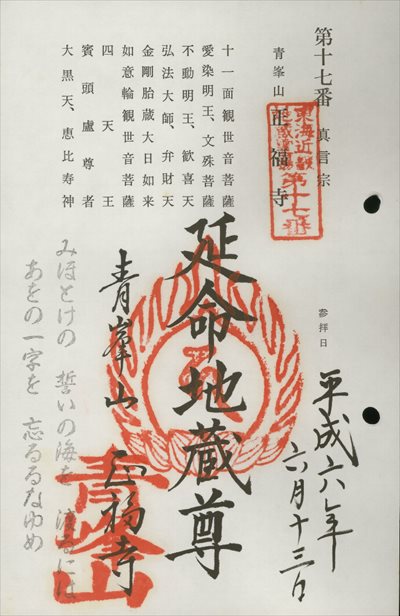 第十七番 真言宗
青峯山 正福寺
第十七番
十一面観世音菩薩
愛染明王、文殊菩薩
不動明王、歓喜天
弘法大師、弁財天
金剛胎蔵大日如来
如意輪観世音菩薩
四天王
賓頭盧尊者
大黒天、恵比寿神
参拝日
平成六年
六月十三日
延命地蔵尊
青峯山 正福寺
青峯山
みほとけの 誓いの海を 渡るには
あをの一字を 忘るるなゆめ